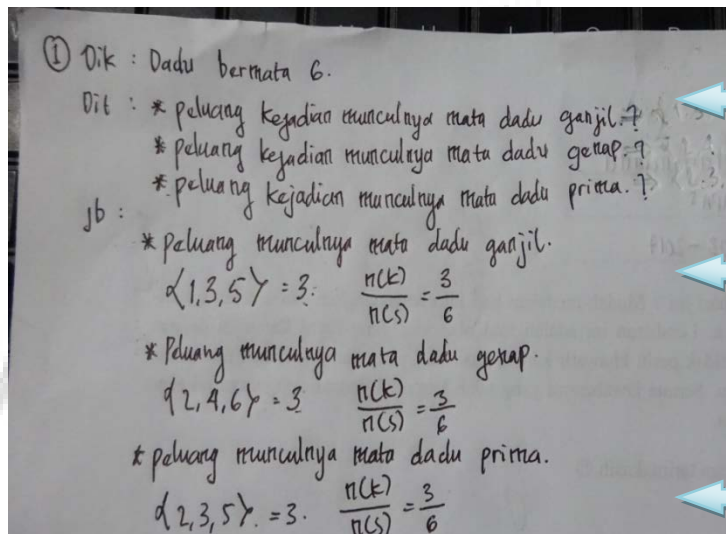 ① Dik : Dadu bermata 6.
Dit : * peluang kejadian munculnya mata dadu ganjil.?
* peluang kejadian munculnya mata dadu genap.?
* peluang kejadian munculnya mata dadu prima.?
Jb :
* peluang munculnya mata dadu ganjil.
{1,3,5} = 3. n(k)/n(s) = 3/6
* Peluang munculnya mata dadu genap.
{2,4,6} = 3 n(k)/n(s) = 3/6
* peluang munculnya mata dadu prima.
{2,3,5}. = 3. n(k)/n(s) = 3/6